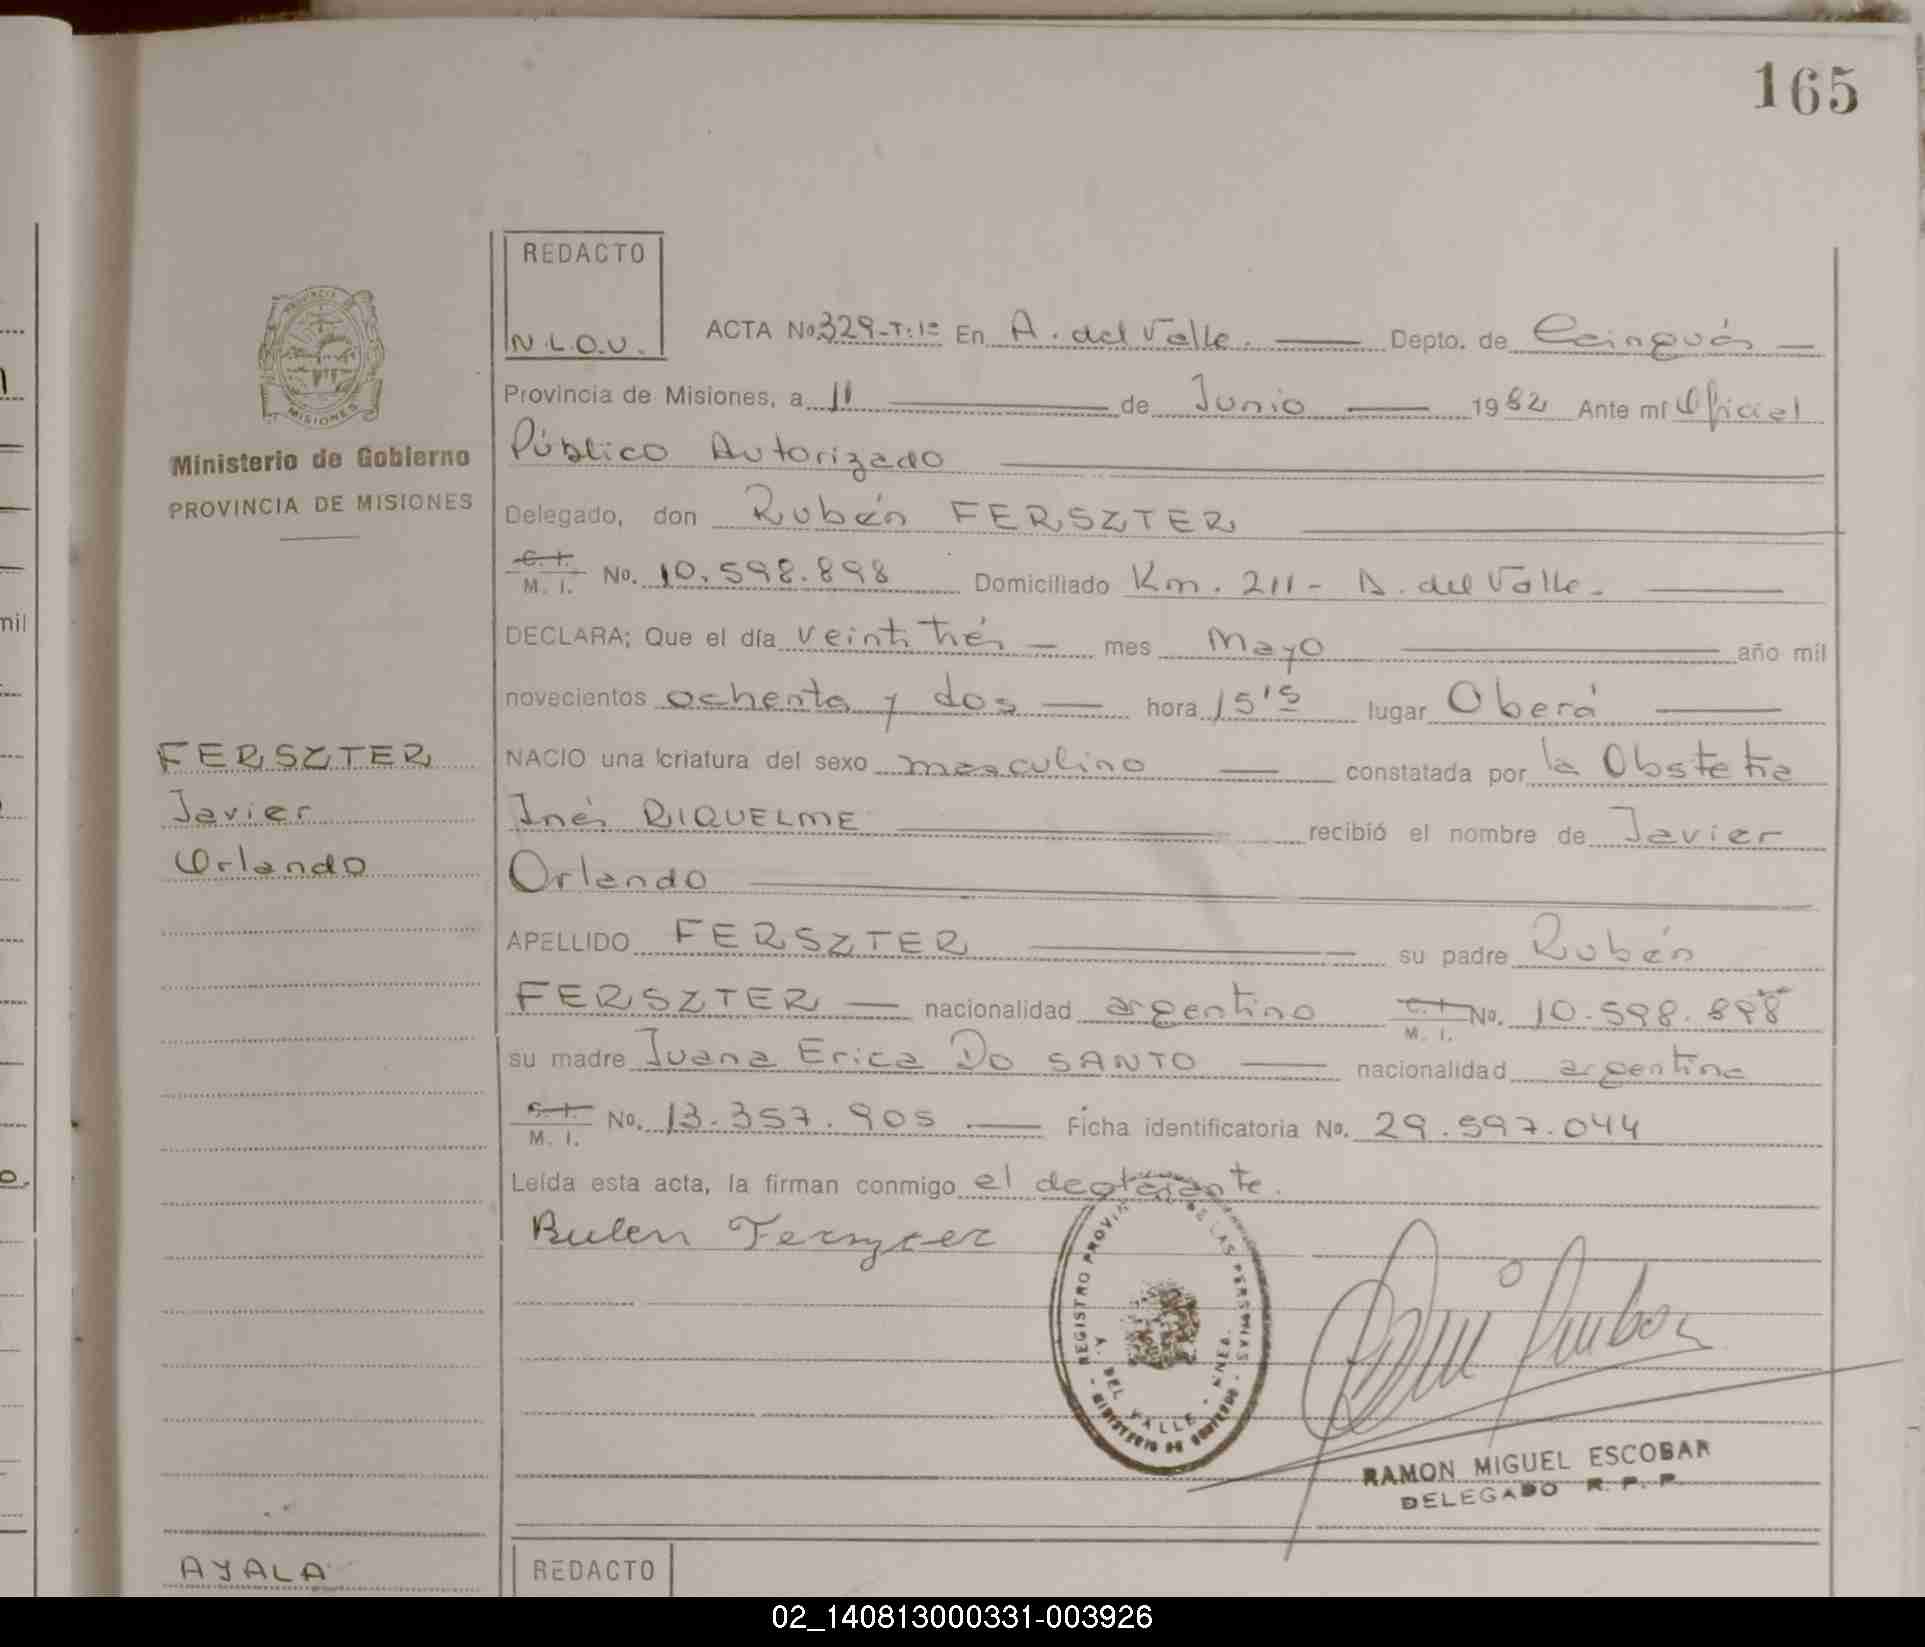 165
REDACTO
N.L.O.U.
ACTA No. 329-T:1º En A. del Valle. Depto. de Cainguás
Provincia de Misiones, a 11 de Junio 1982 Ante mí Oficial
Público Autorizado
Ministerio de Gobierno
PROVINCIA DE MISIONES
Delegado, don Rubén FERSZTER
C. I.
M. I. No. 10.598.898 Domiciliado Km. 211 - A. del Valle.
DECLARA; Que el día veintitrés mes Mayo año mil
novecientos ochenta y dos hora 15's lugar Oberá
FERSZTER
Javier
Orlando
NACIO una criatura del sexo masculino constatada por la Obstetra
Inés RIQUELME recibió el nombre de Javier
Orlando
APELLIDO FERSZTER su padre Rubén
FERSZTER nacionalidad argentino C. I. M. I. No. 10.598.898
su madre Juana Erica Do SANTO nacionalidad argentina
C. I.
M. I. No. 13.357.905 Ficha identificatoria No. 29.597.044
Leída esta acta, la firman conmigo el
REGISTRO PROVIN DE LAS PERSONAS
A. DEL VALLE - MNES.
MINISTERIO DE GOBIERNO
RAMON MIGUEL ESCOBAR
DELEGADO R. P. P.
AYALA
REDACTO
mil
02_140813000331-003926